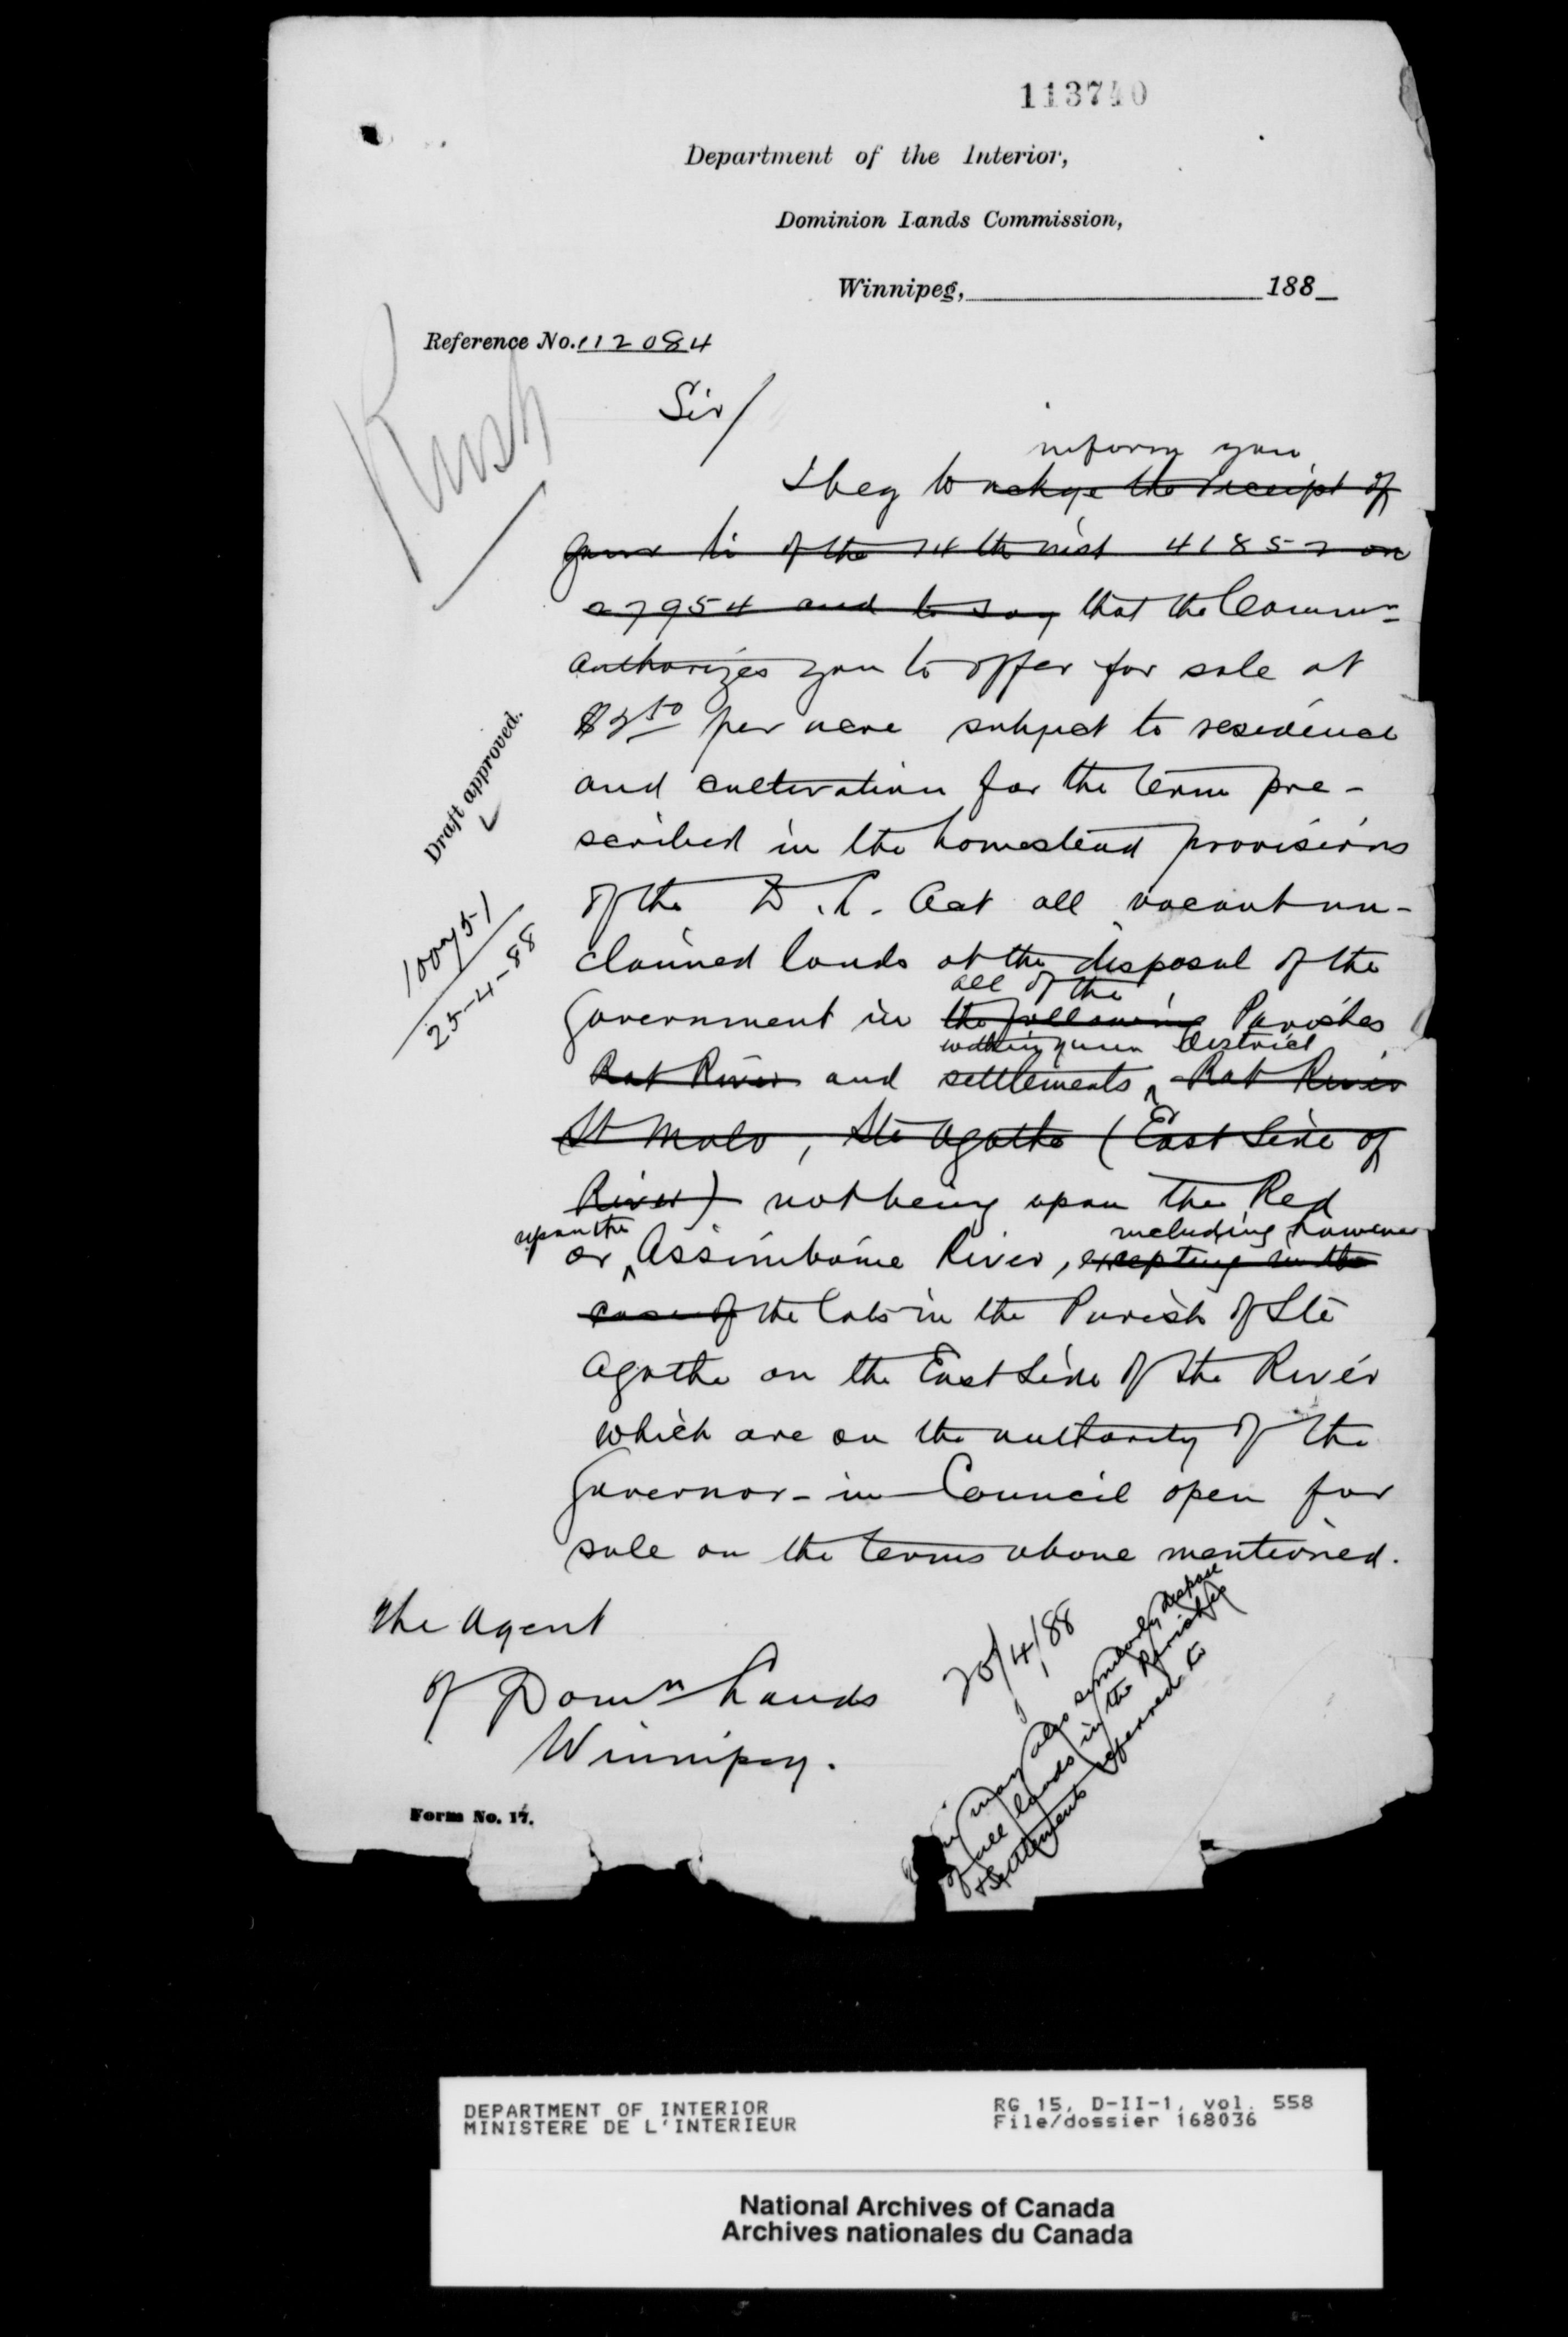 113740
Department of the Interior,
Dominion Lands Commission,
Winnipeg, 188_
Reference No. 112084
Rush
Sir/
inform you
I beg to ackge the receipt of
your of the 14th inst 41852 on
27954 and to say that the Commr
authorizes you to offer for sale at
per acre subject to residence
and cultivation for the term pre-
scribed in the homestead provisions
of the D.L. Act all vacant un-
claimed lands at the disposal of the
all of the
Government in the following Parishes
within your District
Rat River and settlements Rat River
St Malo, Ste Agathe (East Side of
River) not being upon the Red
upon the including however
or Assiniboine River, excepting in the
case of the lots in the Parish of Ste
Agathe on the East Side of the River
which are on the authority of the
Governor-in-Council open for
sale on the terms above mentioned.
Draft approved.
25-4-88
The Agent
of Domn Lands
Winnipeg.
20/4/88
may also similarly dispose
of all lands in the Parishes
& Settlements referred to
Form No. 17.
DEPARTMENT OF INTERIOR
MINISTERE DE L'INTERIEUR
RG 15, D-II-1, vol. 558
File/dossier 168036
National Archives of Canada
Archives nationales du Canada